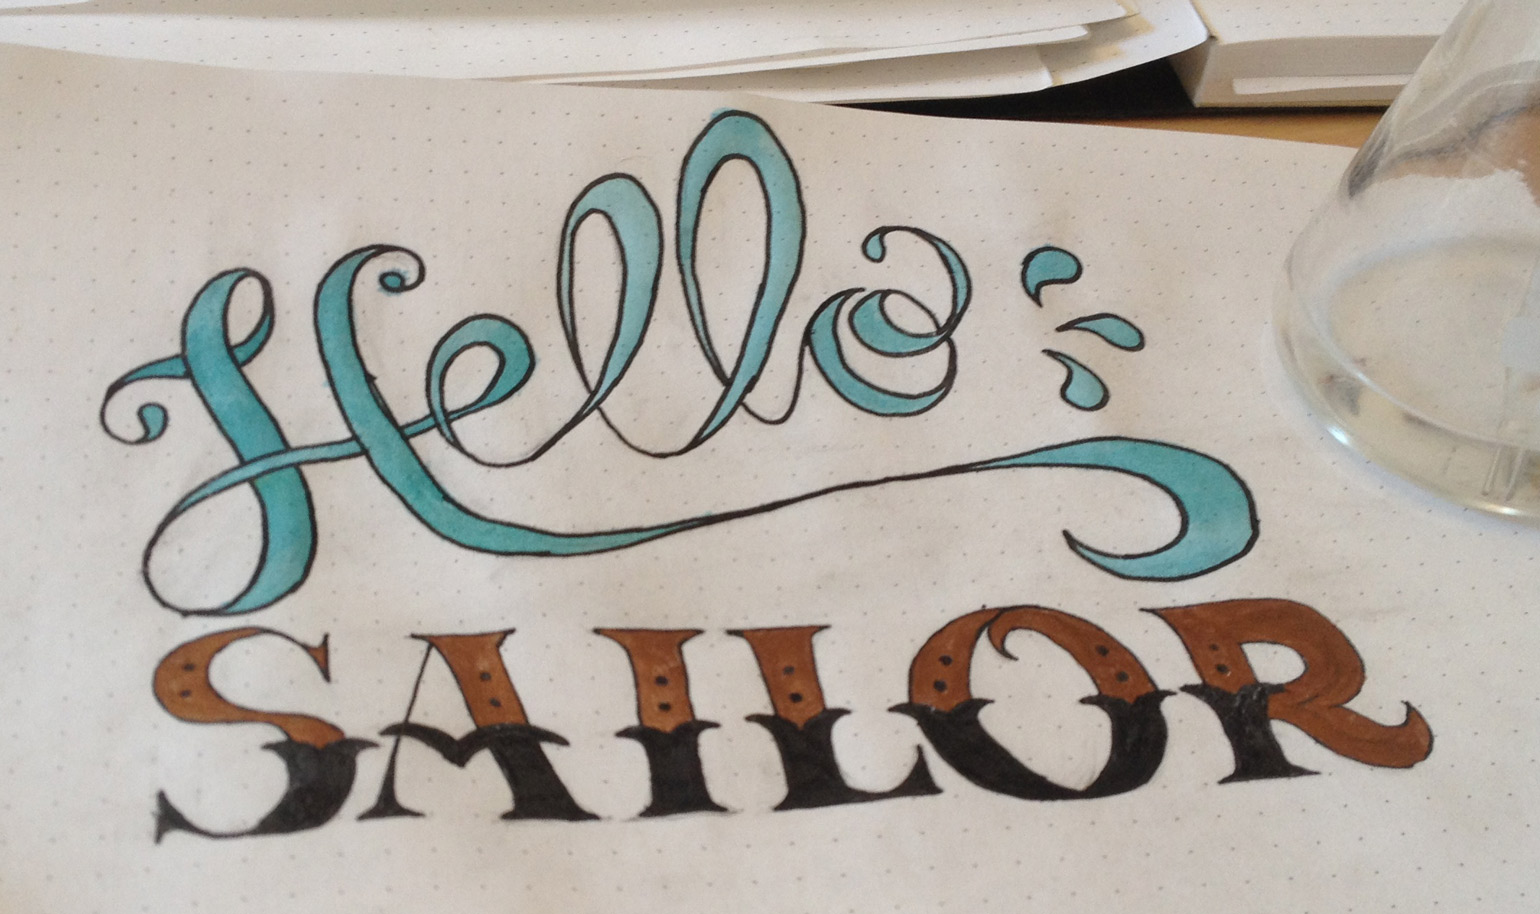 Hello
SAILOR